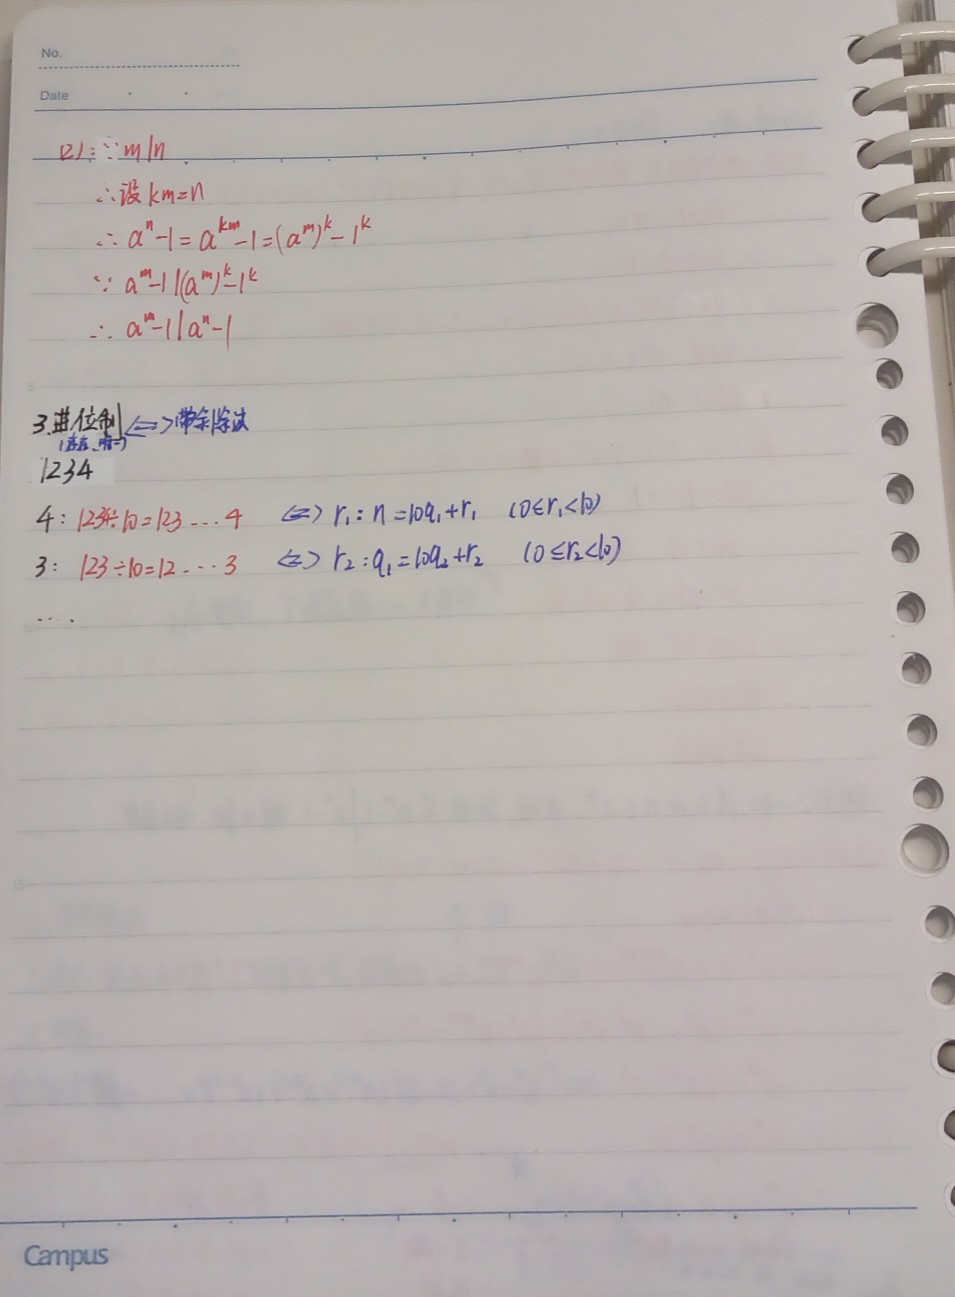 No.
Date
(2): ∵ m|n
∴设 km=n
∴ aⁿ-1=aᵏᵐ-1=(aᵐ)ᵏ-1ᵏ
∵ aᵐ-1|(aᵐ)ᵏ-1ᵏ
∴ aᵐ-1|aⁿ-1
3.进位制<=>带余除法
(存在、唯一)
1234
4: 1234÷10=123...4 <=> r₁: n=10q₁+r₁ (0≤r₁<10)
3: 123÷10=12...3 <=> r₂: q₁=10q₂+r₂ (0≤r₂<10)
....
Campus